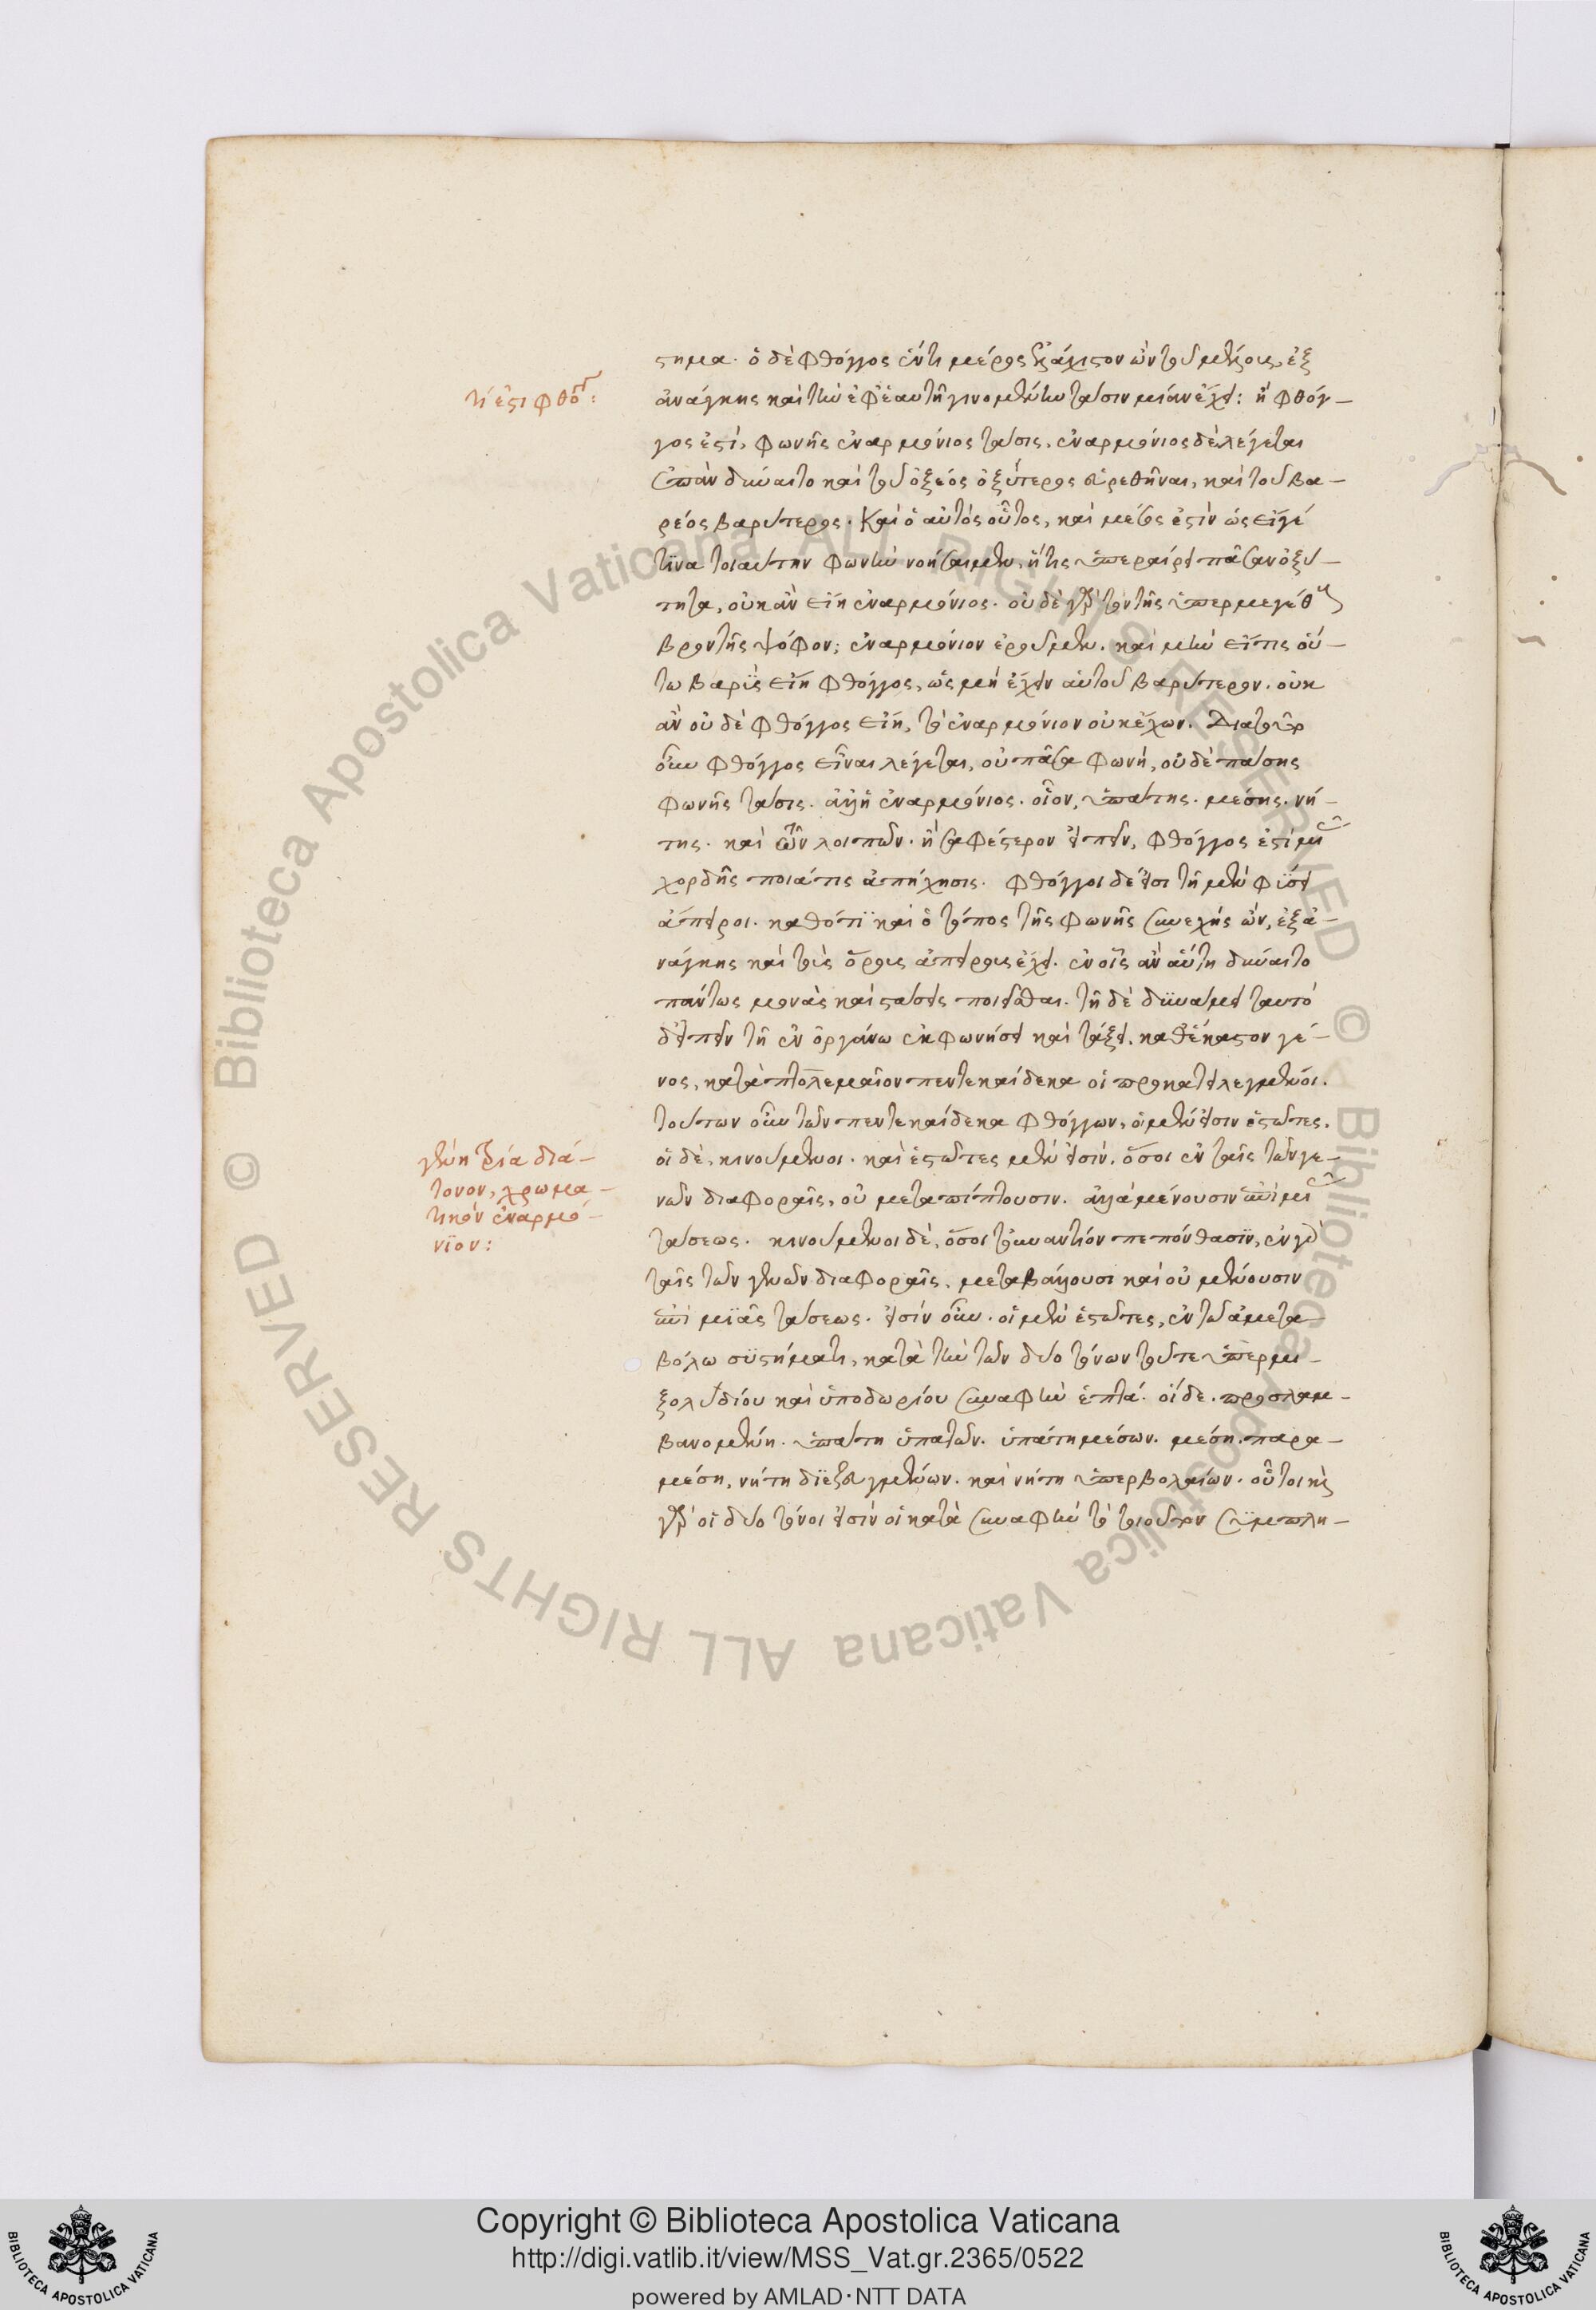 στημα. ὁ δὲ φθόγγος ἐν τι μέρος ἐλάχιστον ὢν τοῦ μέλους, ἐξ
τί ἐστι φθό:
ἀνάγκης καὶ τὴν ἐφ' ἑαυτῆ γινομένην τάσιν μίαν ἔχει: ἢ φθόγ-
γος ἐστί, φωνῆς ἐναρμόνιος τάσις. ἐναρμόνιος δὲ λέγεται
ἐπὰν δύναιτο καὶ τοῦ ὀξέος ὀξύτερος εὑρεθῆναι, καὶ τοῦ βα-
ρέος βαρύτερος. Καὶ ὁ αὐτὸς οὗτος, καὶ μέσος ἐστὶν ὡς εἴγέ
τινα τοιαύτην φωνὴν νοήσαιμεν, ἥτις ὑπεραίρει πᾶσαν ὀξύ-
τητα, οὐκ ἂν εἴη ἐναρμόνιος. οὐδὲ γὰρ τὸν τῆς ὑπερμεγέθους
βροντῆς ψόφον; ἐναρμόνιον ἐροῦμεν. καὶ μὴν εἴ τις οὕ-
τω βαρὺς εἴη φθόγγος, ὡς μὴ ἔχειν αὐτοῦ βαρύτερον. οὐκ
ἂν οὐδὲ φθόγγος εἴη, τὸ ἐναρμόνιον οὐκ ἔχων. Διατοῦτο
οὖν φθόγγος εἶναι λέγεται, οὐ πᾶσα φωνή, οὐδὲ πάσης
φωνῆς τάσις. ἀλλ' ἡ ἐναρμόνιος. οἷον, ὑπάτης. μέσης. νή-
της. καὶ τῶν λοιπῶν. ἢ σαφέστερον εἰπεῖν, φθόγγος ἐστὶ μιᾶς
χορδῆς ποιά τις ἀπήχησις. φθόγγοι δέ εἰσι τῆ μὲν φύσει
ἄπειροι. καθότι καὶ ὁ τόπος τῆς φωνῆς συνεχὴς ὢν, ἐξ ἀ-
νάγκης καὶ τοὺς ὅρους ἀπείρους ἔχει. ἐν οἷς ἂν αὕτη δύναιτο
πάντως μονὰς καὶ στάσεις ποιεῖσθαι. τῆ δὲ δυνάμει ταυτὸ
δ' εἰπεῖν τῆ ἐν ὀργάνω ἐκφωνήσει καὶ τάξει. καθ' ἕκαστον γέ-
νος, κατὰ πτολεμαῖον πεντεκαίδεκα οἱ προκατειλεγμένοι.
τούτων οὖν τῶν πεντεκαίδεκα φθόγγων, οἱ μέν εἰσιν ἑστῶτες.
γένη τρία διά-
τονον, χρωμα-
τικὸν ἐναρμό-
νιον:
οἱ δὲ, κινούμενοι. καὶ ἑστῶτες μέν εἰσιν, ὅσοι ἐν ταῖς τῶν γε-
νῶν διαφοραῖς, οὐ μεταπίπτουσιν. ἀλλὰ μένουσιν ἐπὶ μιᾶς
τάσεως. κινούμενοι δὲ, ὅσοι τοὐναντίον πεπόνθασιν, ἐν γὰρ
ταῖς τῶν γενῶν διαφοραῖς. μεταβάλλουσι καὶ οὐ μένουσιν
ἐπὶ μιᾶς τάσεως. εἰσὶν οὖν. οἱ μὲν ἑστῶτες, ἐν τῶ ἀμετα
βόλω συστήματι, κατὰ τὴν τῶν δύο τόνων τοῦ τε ὑπερμι-
ξολυδίου καὶ ὑποδωρίου συναφὴν ἑπτά. οἵδε. προσλαμ-
βανομένη. ὑπάτη ὑπατῶν. ὑπάτη μέσων. μέση. παρα-
μέση, νήτη διεζευγμένων. καὶ νήτη ὑπερβολαίων. οὗτοι κὶ
γὰρ οἱ δύο τόνοι εἰσὶν οἱ κατὰ συναφὴν τὸ τοιοῦτον συμπλη-
Copyright © Biblioteca Apostolica Vaticana
http://digi.vatlib.it/view/MSS_Vat.gr.2365/0522
powered by AMLAD·NTT DATA
BIBLIOTECA APOSTOLICA VATICANA
BIBLIOTECA APOSTOLICA VATICANA
© Biblioteca Apostolica Vaticana ALL RIGHTS RESERVED © Biblioteca Apostolica Vaticana ALL RIGHTS RESERVED